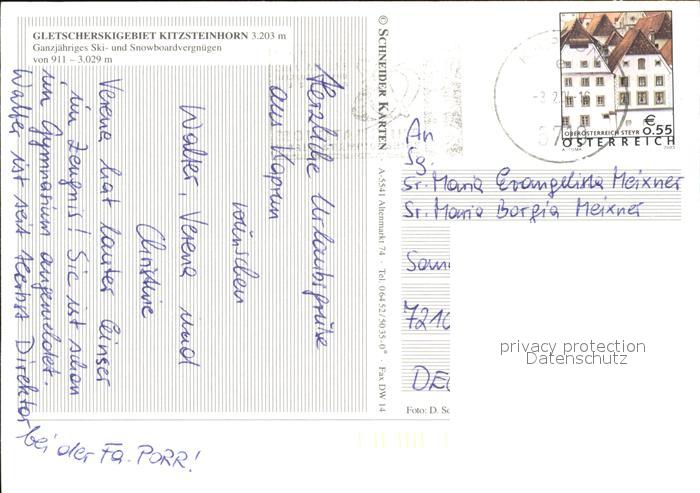 GLETSCHERSKIGEBIET KITZSTEINHORN 3.203 m
Ganzjähriges Ski- und Snowboardvergnügen
von 911 – 3.029 m
Herzliche Urlaubsgrüße
aus Kaprun
wünschen
Walter Verena und
Christine
Verena hat lauter Einser
im Zeugnis! Sie ist schon
im Gymnasium angemeldet.
Walter ist seit Herbst Direktor
bei der Fa. PORR!
© SCHNEIDER KARTEN · A-5541 Altenmarkt 74 · Tel. 06452/5035-0* · Fax DW 14
€
0.55
OBERÖSTERREICH STEYR
ÖSTERREICH
A. TUMA
An
Sg.
Sr. Maria Evangelista Meixner
Sr. Maria Borgia Meixner
7210
privacy protection
Datenschutz
Foto: D.